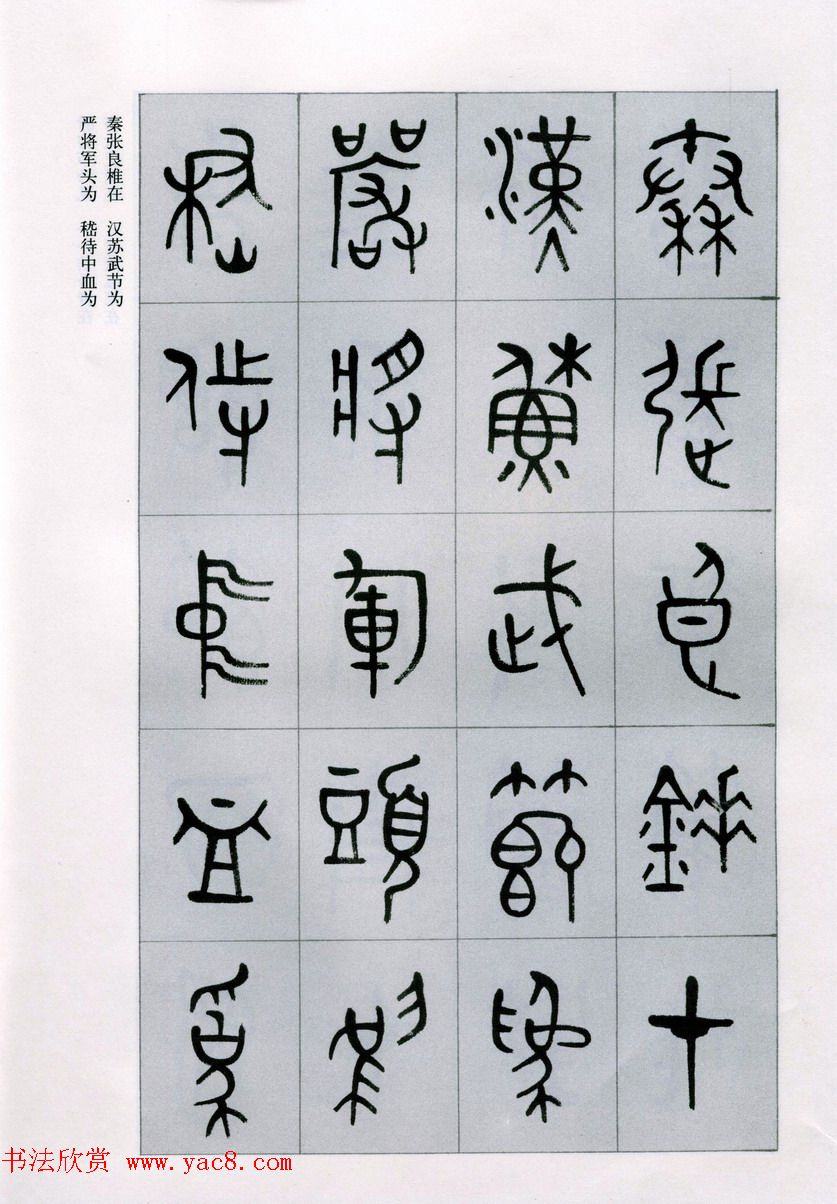 秦張良錘在
漢蘇武節為
嚴將軍頭為
嵇侍中血為
秦张良椎在 汉苏武节为
严将军头为 嵇待中血为
书法欣赏 www.yac8.com